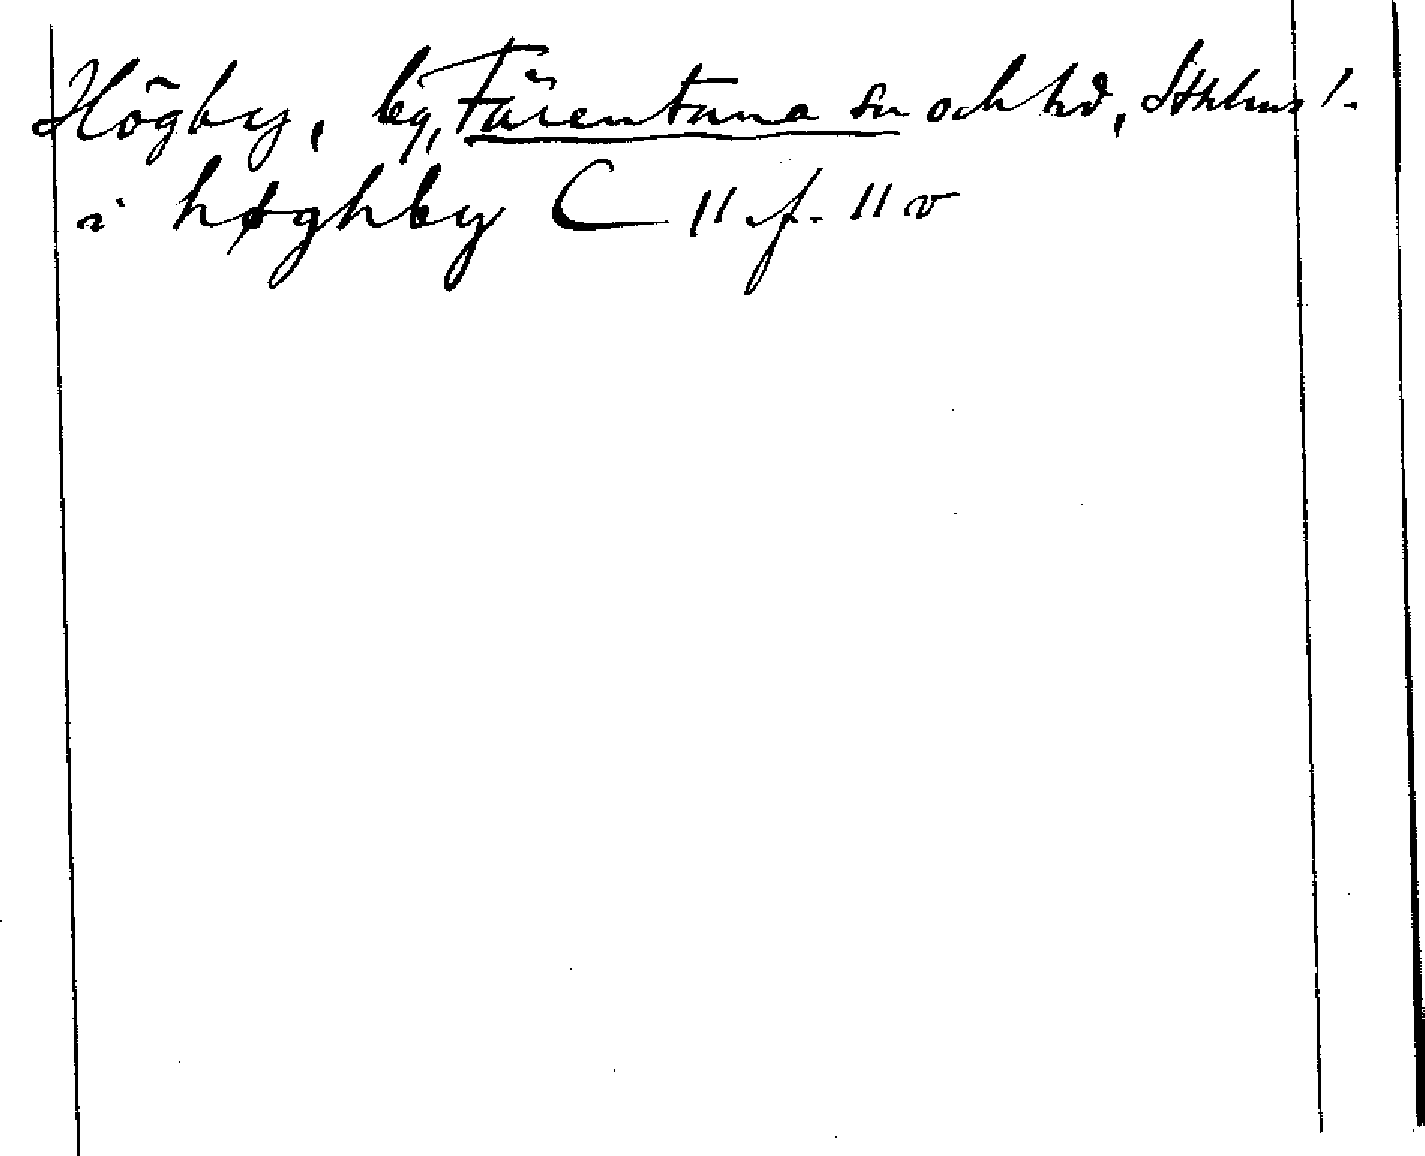 Högby, by, Färentuna sn och hd, Sthlms l.
i høghby C 11 f. 11 v